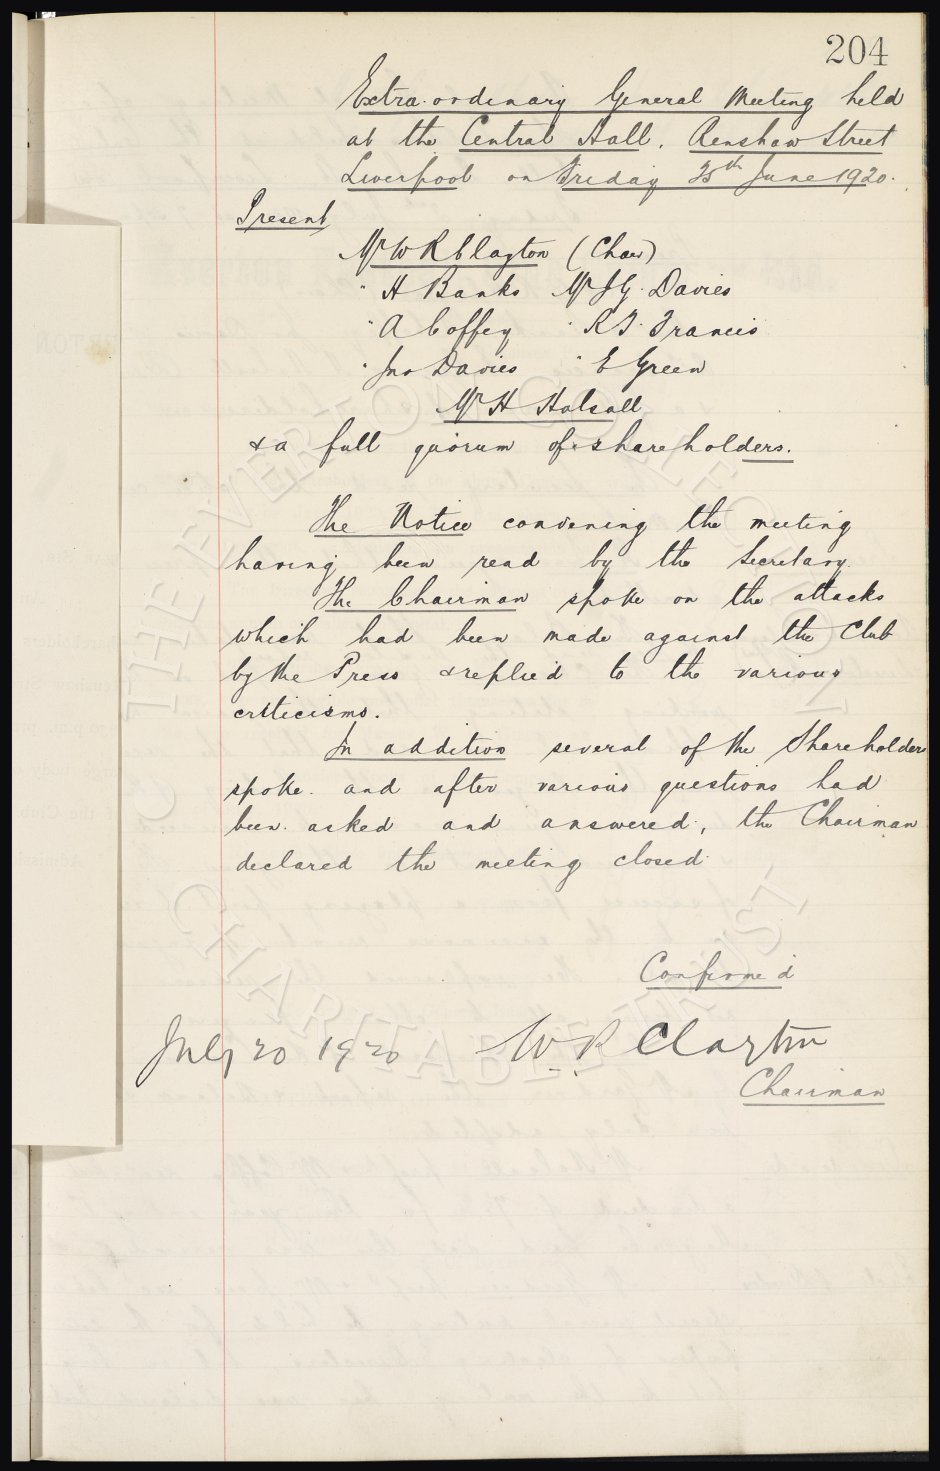 204
Extra-ordinary General Meeting held
at the Central Hall, Renshaw Street
Liverpool on Friday 25th June 1920.
Present
Mr W R Clayton (Chair)
" H Banks Mr J G. Davies
" A Coffey " R T. Francis
" Jno Davies " E Green
Mr H Halsall
& a full quorum of shareholders.
The Notice convening the meeting
having been read by the Secretary.
The Chairman spoke on the attacks
which had been made against the Club
by the Press & replied to the various
criticisms.
In addition several of the Shareholders
spoke. and after various questions had
been asked and answered, the Chairman
declared the meeting closed.
Confirmed
July 20 1920 W R Clayton
Chairman
THE EVERTON COLLECTION
CHARITABLE TRUST